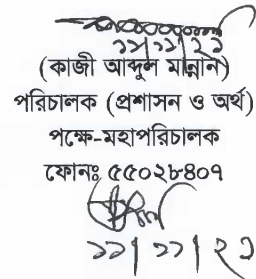 ১১|১১|২১
(কাজী আব্দুল মান্নান)
পরিচালক (প্রশাসন ও অর্থ)
পক্ষে-মহাপরিচালক
ফোনঃ ৫৫০২৮৪০৭
১১|১১|২১